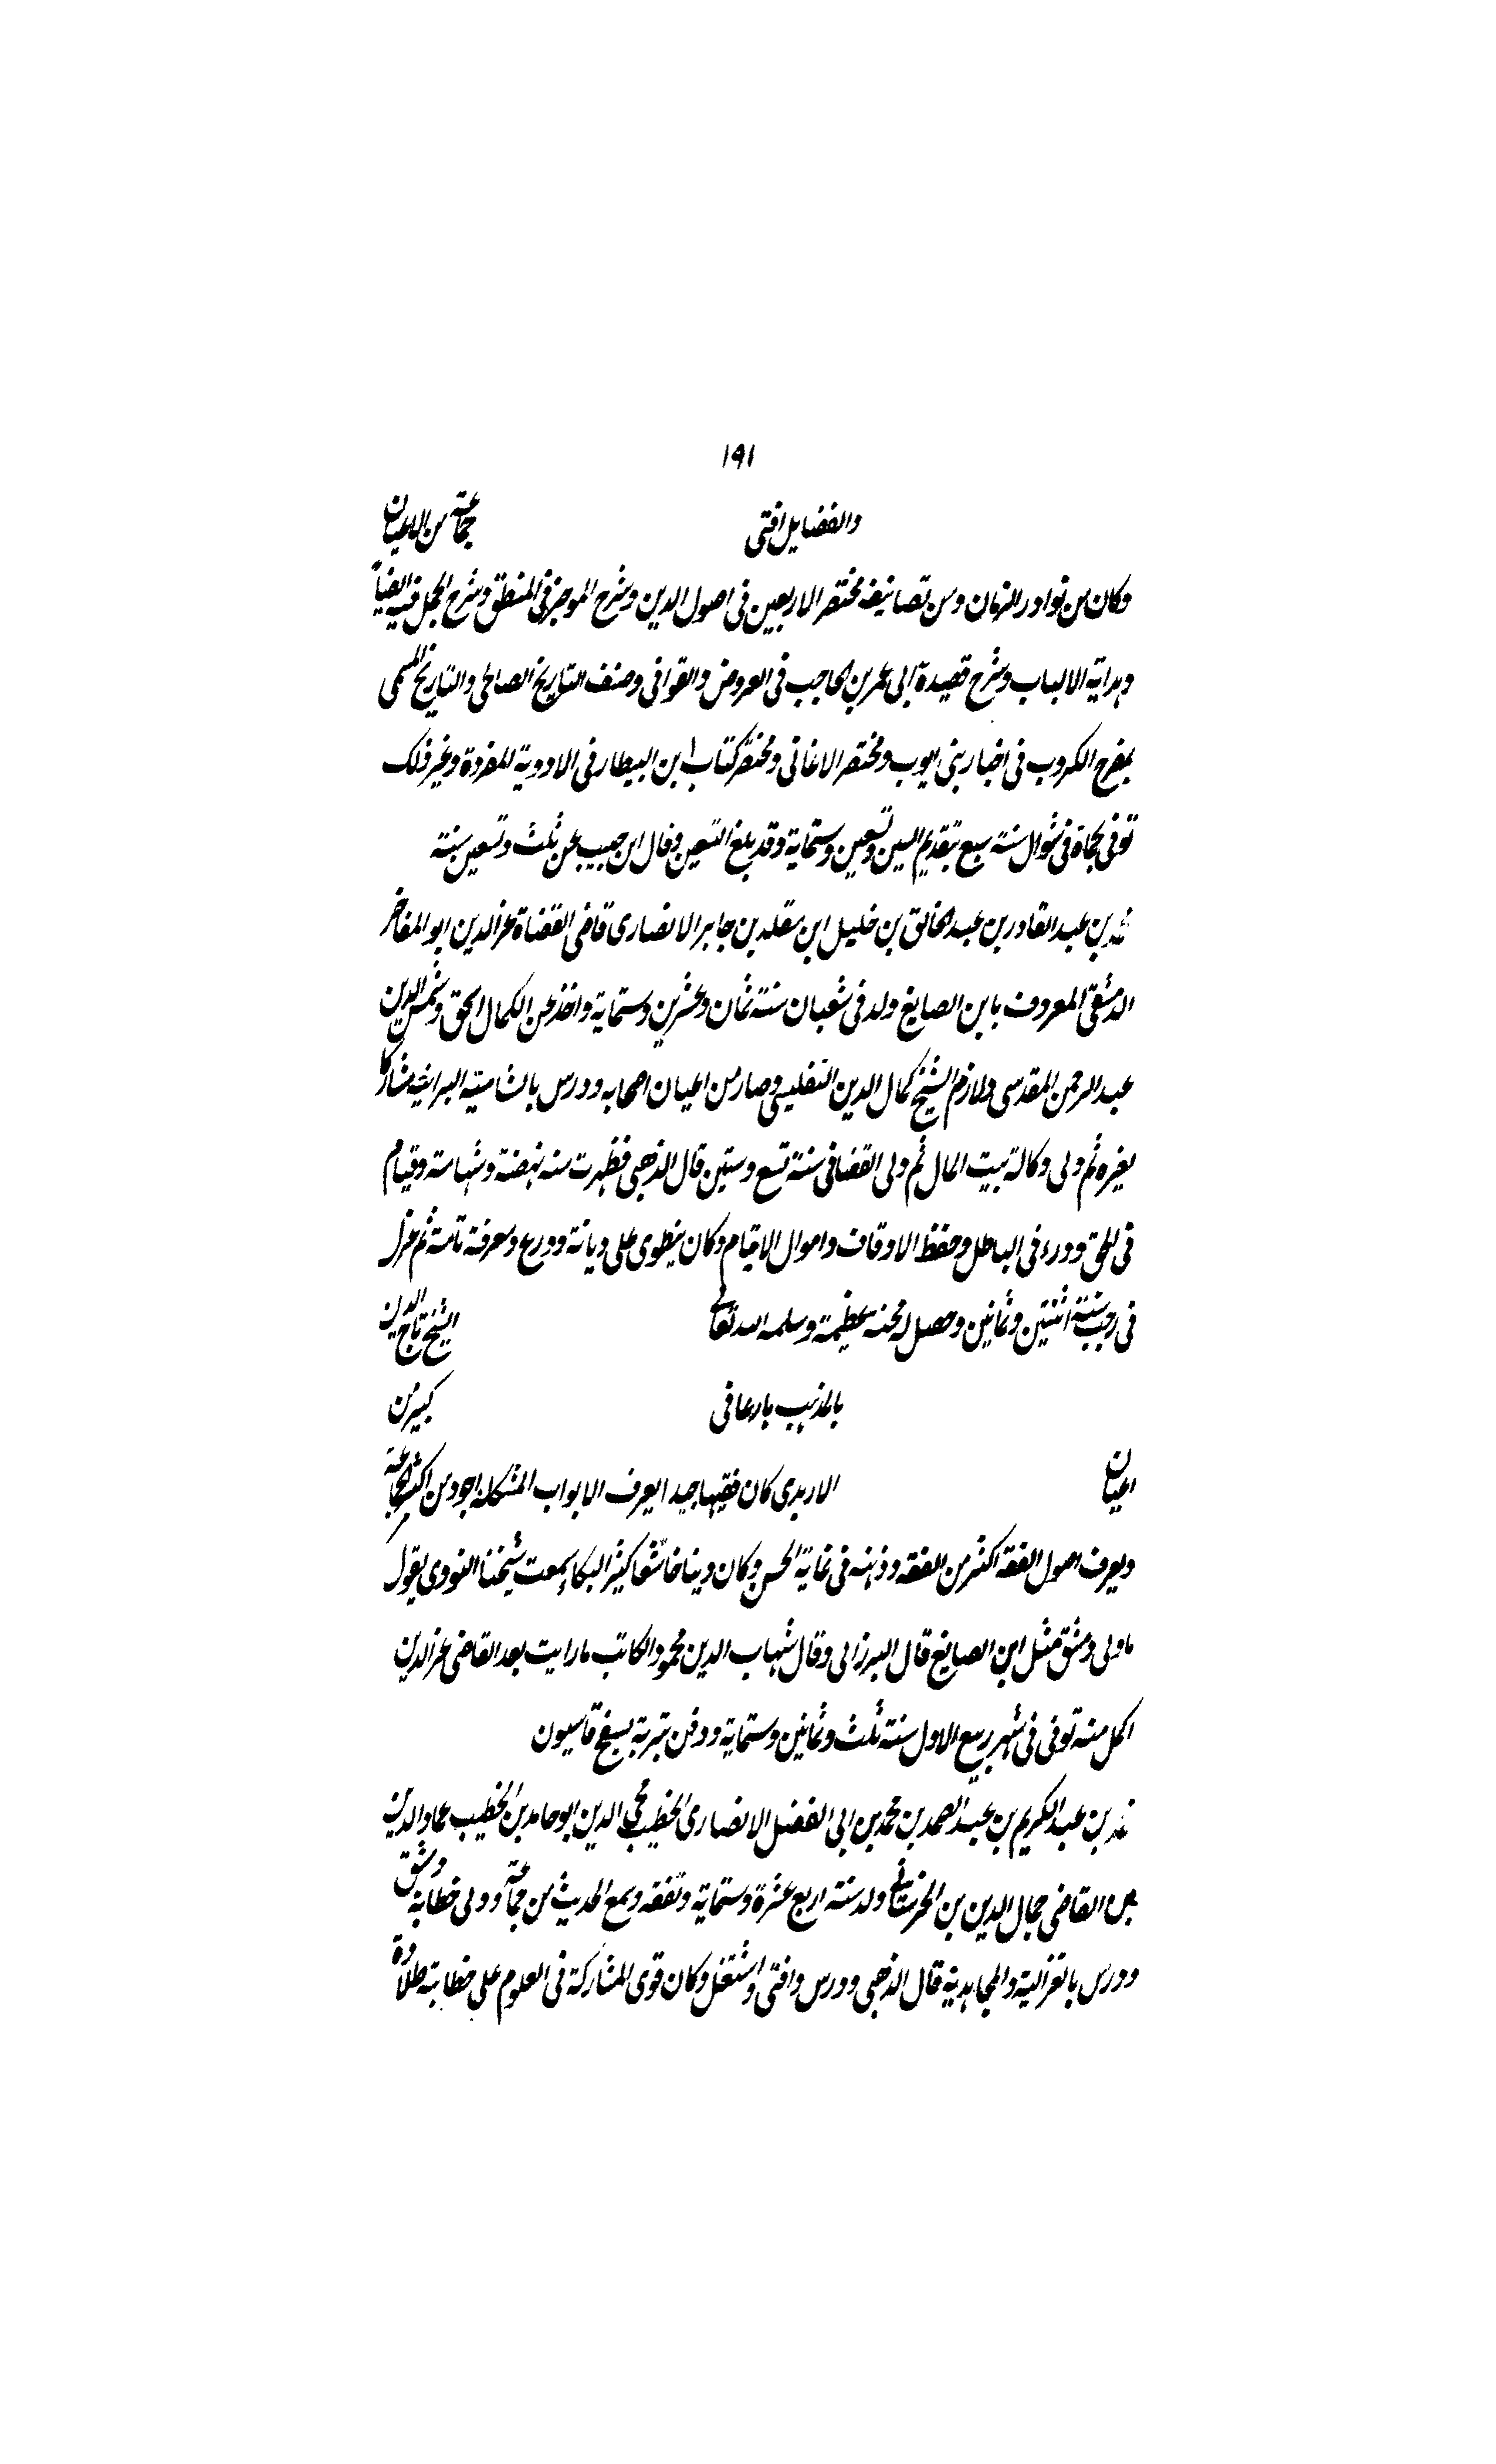 ١٩١
والفضايل افتى جماعة من الاعيان
وكان من نوادر الزمان ومن تصانيفه مختصر الاربعين فى اصول الدين وشرح الموجز فى المنطق وشرح الجمل فيه ايضاً
وهداية الالباب وشرح قصيدة ابى عمر بن الحاجب فى العروض والقوافى وصنف التاريخ الصالحى والتاريخ المسمى
بمفرج الكروب فى اخبار بنى ايوب ومختصر الاغانى ومختصر كتاب ابن البيطار فى الادوية المفردة وغير ذلك
توفى بحماة فى شوال سنة سبع بتقديم السين وتسعين وستماية وقد بلغ التسعين وقال ابن حبيب عن ثلث وتسعين سنة
محمد بن عبد القادر بن عبد الخالق بن خليل ابن مقلد بن جابر الانصارى قاضى القضاة عز الدين ابو المفاخر
الدمشقى المعروف بابن الصايغ ولد فى شعبان سنة ثمان وعشرين وستماية واخذ عن الكمال اسحق وشمس الدين
عبد الرحمن المقدسى ولازم الشيخ كمال الدين التفليسى وصار من اعيان اصحابه ودرس بالشامية البرانية مشاركا
لغيره ثم ولى وكالة بيت المال ثم ولى القضا فى سنة تسع وستين قال الذهبى فظهرت منه نهضة وشهامة وقيام
فى الحق ودرء فى الباطل وحفظ الاوقاف واموال الايتام وكان ينطوى على ديانة وورع ومعرفة تامة ثم عزل
فى رجب سنة اثنتين وثمانين وحصل له محنة عظيمة وسلمه الله تعالى الشيخ تاج الدين
بالمذهب بارعا فى كبير من
اعيان الاربدى كان فقيها جيدا يعرف الابواب المشكلة اجود من اكثر الجماعة
ويعرف اصول الفقه اكثر من الفقه وذهنه فى غاية الحسن وكان دينا خاشعا كثير البكاء سمعت شيخنا النووى يقول
ما ولى دمشق مثل ابن الصايغ قال البرزالى وقال شهاب الدين محمود الكاتب ما رايت بعد القاضى عز الدين
اكمل منه توفى فى شهر ربيع الاول سنة ثلث وثمانين وستماية ودفن بتربة بسفح قاسيون
محمد بن عبد الكريم بن عبد الصمد بن محمد بن ابى الفضل الانصارى الخطيب محيى الدين ابو حامد بن الخطيب عماد الدين
بن القاضى جمال الدين بن الحرستانى ولد سنة اربع عشرة وستماية وتفقه وسمع الحديث من جماعة وولى خطابة دمشق
ودرس بالغزالية والمجاهدية قال الذهبى ودرس وافتى واشتغل وكان قوى المشاركة فى العلوم على خطابته طلاوة